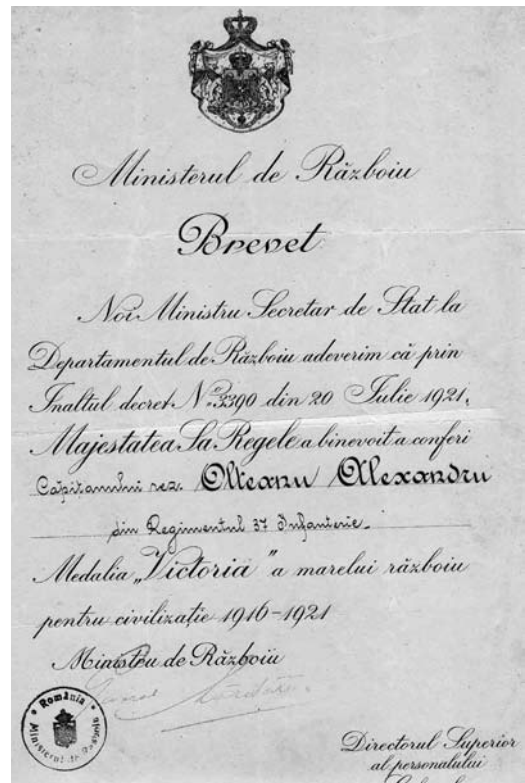 Ministerul de Războiu
Brevet
Noi Ministru Secretar de Stat la
Departamentul de Războiu adeverim că prin
Inaltul decret No. 3390 din 20 Iulie 1921,
Majestatea Sa Regele a binevoit a conferi
Capitanului rez. Olteanu Alexandru
din Regimentul 37 Infanterie.
Medalia „Victoria” a marelui războiu
pentru civilizație 1916-1921
Ministru de Războiu
România
Ministerul de Războiu
Directorul Superior
al personalului